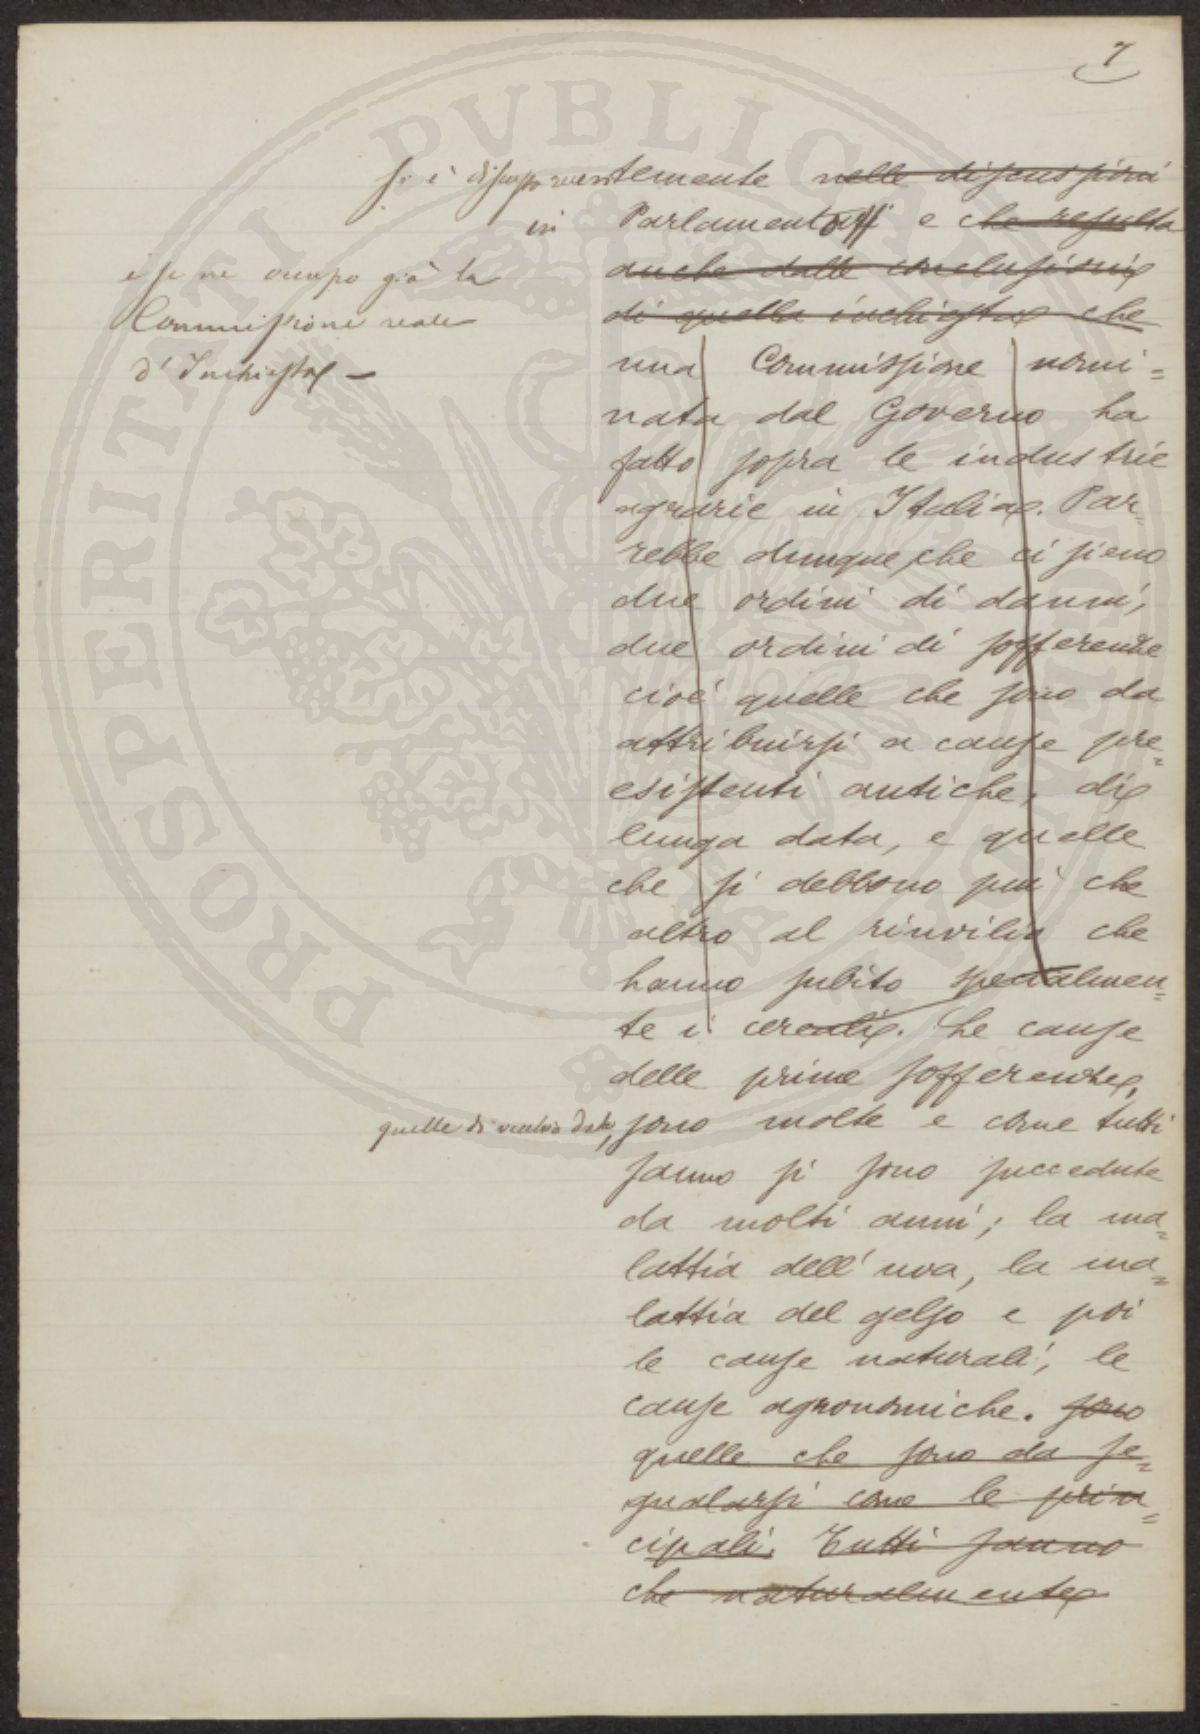 7
si è discusso recentemente nelle discussioni
in Parlamento e che resulta
e se ne occupò già la
Commissione reale
d'Inchiesta —
anche dalle conclusioni
di quella inchiesta che
una Commissione nomi=
nata dal Governo ha
fatto sopra le industrie
agrarie in Italia. Par=
rebbe dunque che ci sieno
due ordini di danni,
due ordini di sofferenze
cioè quelle che sono da
attribuirsi a cause pre=
esistenti antiche, di
lunga data, e quelle
che si debbono più che
altro al rinvilio che
hanno subito specialmen=
te i cereali. Le cause
delle prime sofferenze,
quelle di vecchia data, sono molte e come tutti
sanno si sono succedute
da molti anni; la ma=
lattia dell'uva, la ma=
lattia del gelso e poi
le cause naturali, le
cause agronomiche. sono
quelle che sono da se=
gnalarsi come le prin=
cipali. Tutti sanno
che naturalmente
PROSPERITATI PVBLICAE